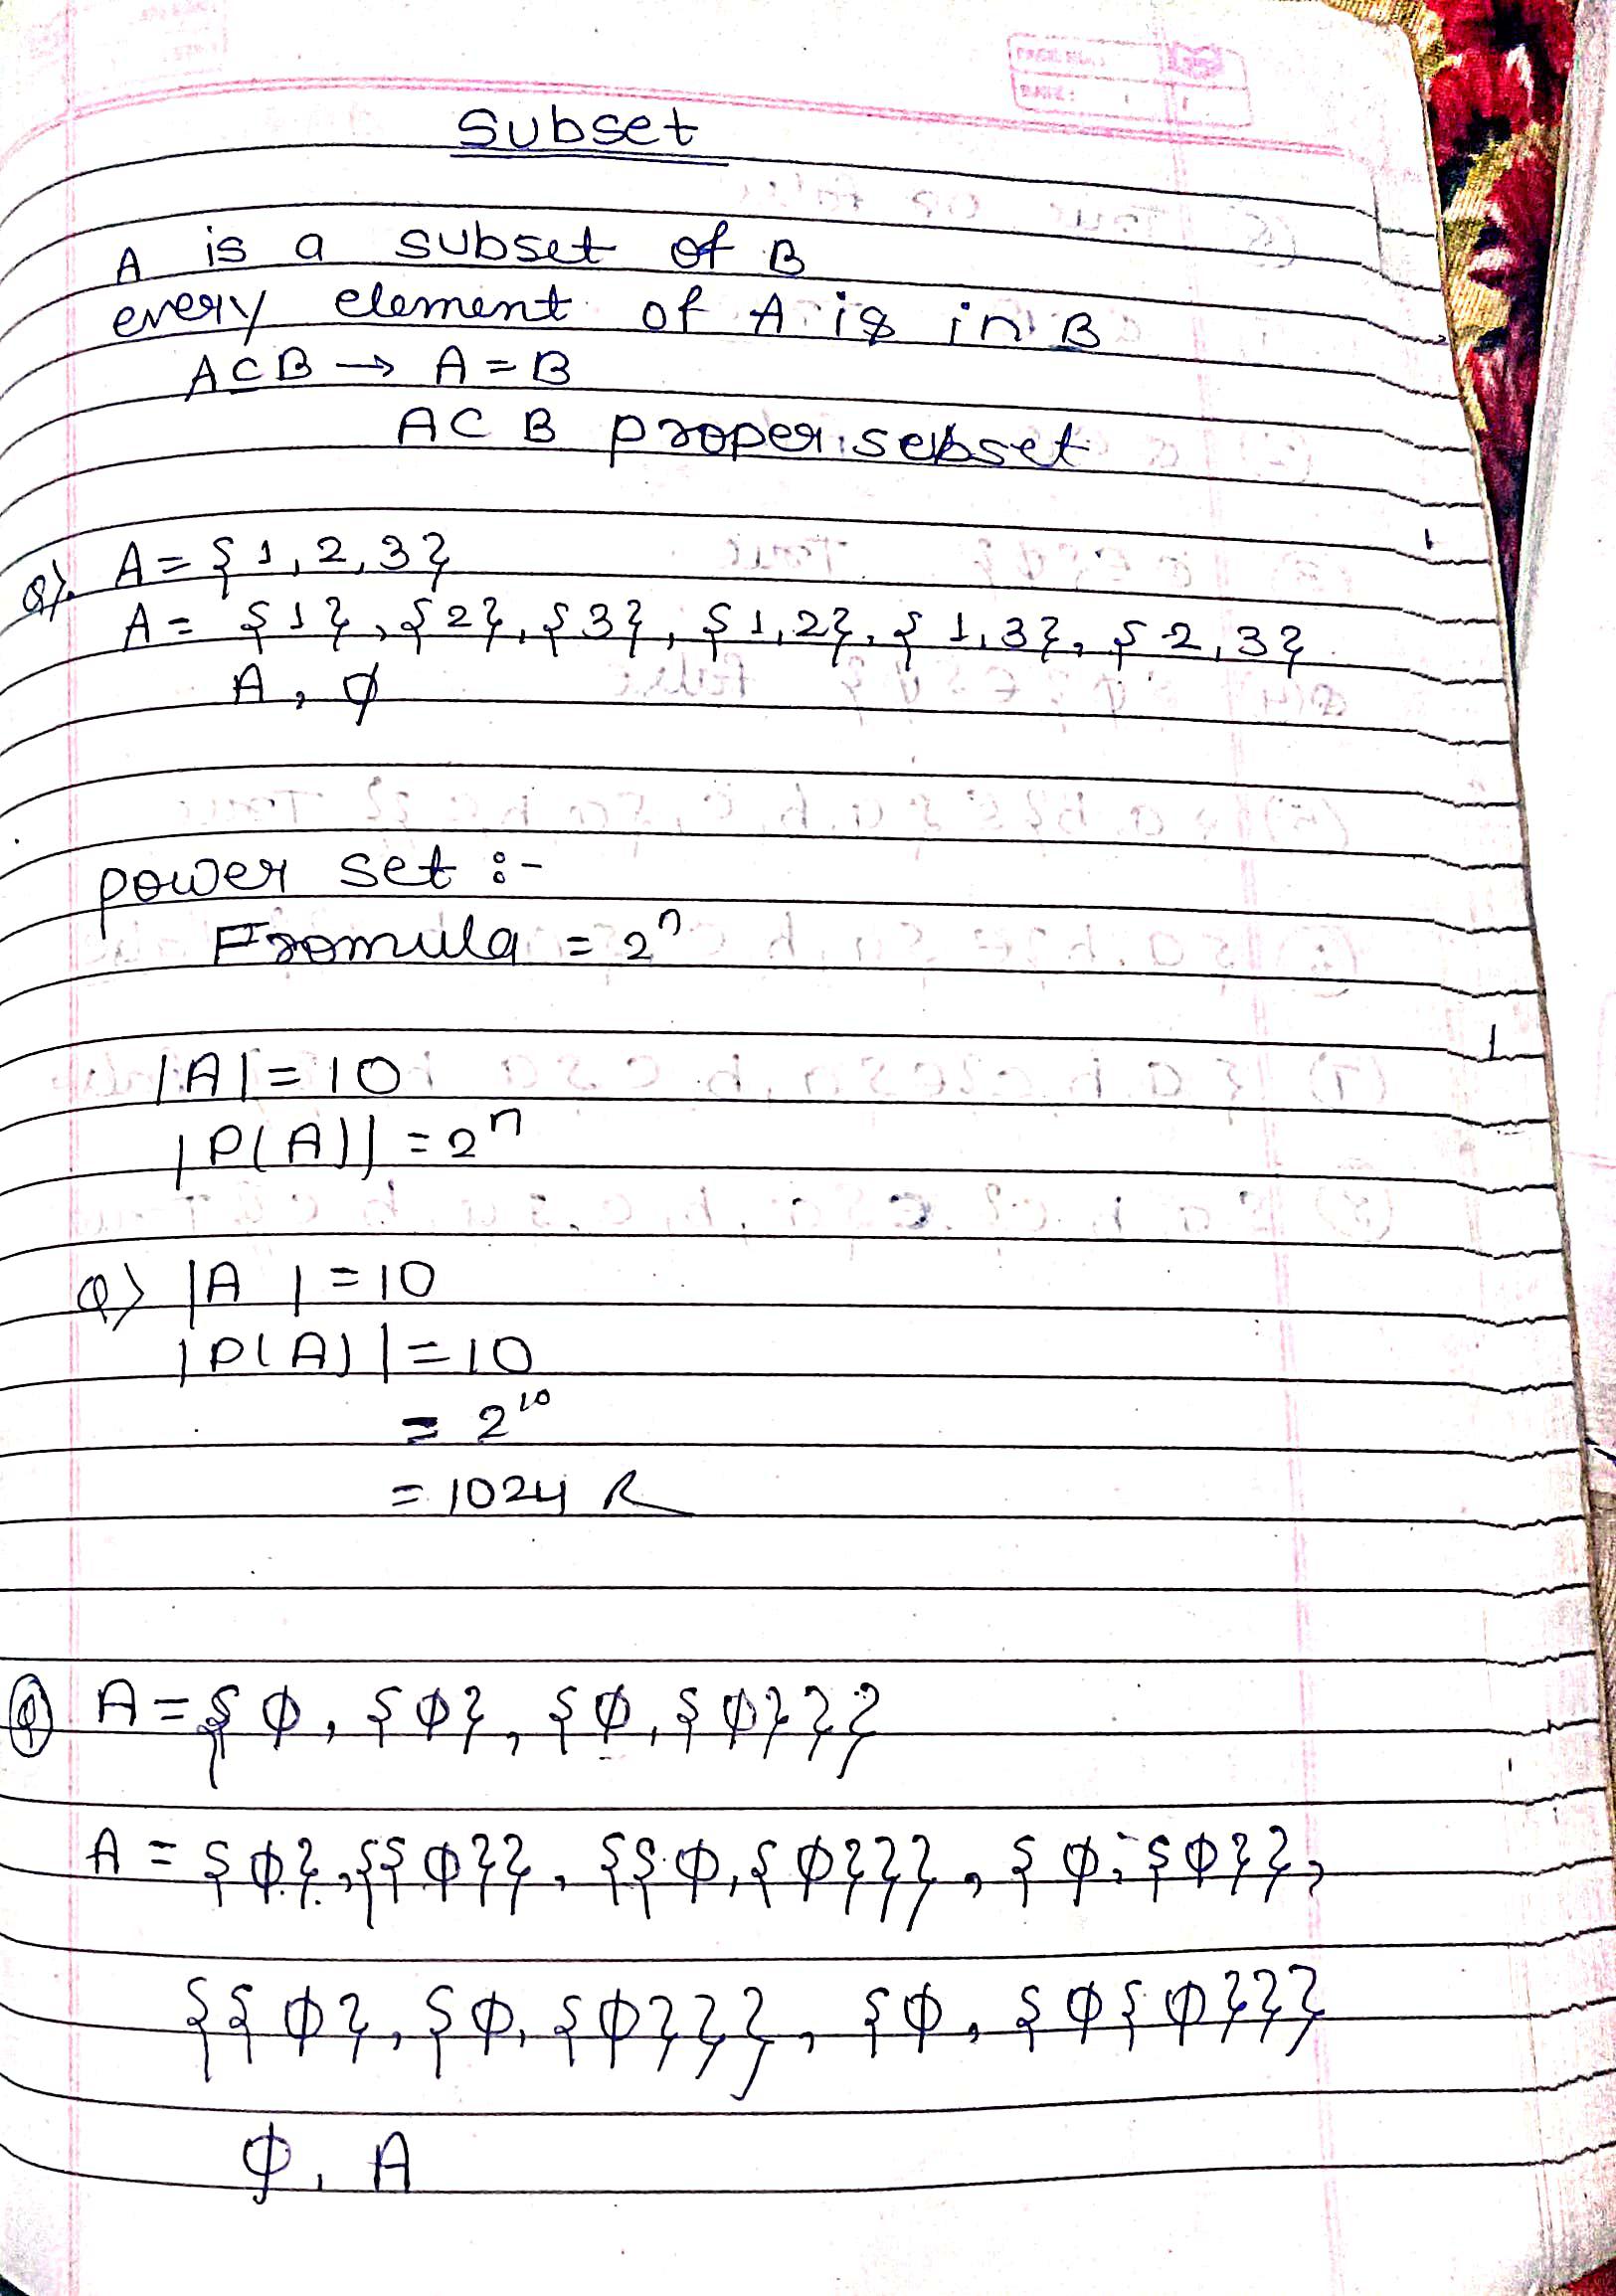 PAGE NO.:
DATE:
Subset
A is a subset of B
every element of A is in B
A⊆B → A=B
A⊂B proper subset
Q). A={1,2,3}
A= {1},{2},{3},{1,2},{1,3},{2,3}
A, ϕ
power set :-
Fromula = 2ⁿ
|A|=10
|P(A)|=2ⁿ
Q) |A|=10
|P(A)|=10
= 2¹⁰
= 1024
Q A={ϕ,{ϕ},{ϕ,{ϕ}}}
A={ϕ},{{ϕ}},{{ϕ,{ϕ}}},{ϕ,{ϕ}},
{{ϕ},{ϕ,{ϕ}}},{ϕ,{ϕ{ϕ}}}
ϕ, A